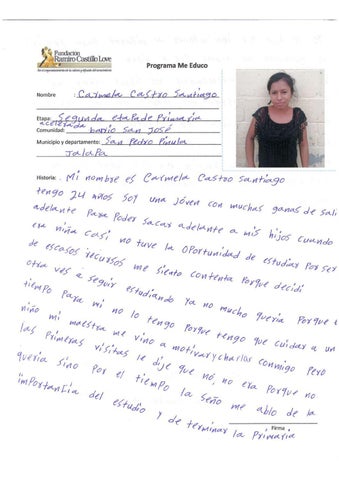 Fundación
Ramiro Castillo Love
Programa Me Educo
Nombre : Carmela Castro Santiago
Etapa: Segunda etapa de Primaria
acelerada
Comunidad: barrio San José
Municipio y departamento: San Pedro Pinula
Jalapa
Historia: Mi nombre es Carmela Castro Santiago
tengo 24 años soy una jóven con muchas ganas de sali
adelante Para Poder sacar adelante a mis hijos cuando
era niña casi no tuve la oportunidad de estudiar Por ser
de escasos recursos me siento contenta Porque decidí
otra ves a seguir estudiando ya no mucho queria Porque
tiempo Para mi no lo tengo Porque tengo que cuidar a un
niño mi maestra me vino a motivar y charlar conmigo Pero
las Primeras visitas le dije que no, no era Porque no
queria sino Por el tiempo la seño me ablo de la
importancia del estudio y de terminar la Primaria
Firma